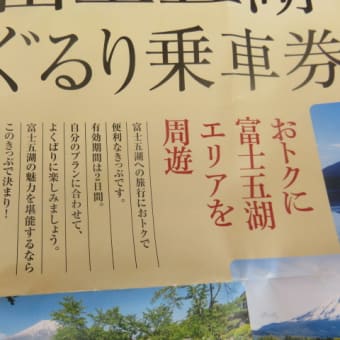 富士五湖
ぐるり乗車券
おトクに
富士五湖
エリアを
周遊
富士五湖への旅行におトクで
便利なきっぷです。
有効期間は2日間。
自分のプランに合わせて、
よくばりに楽しみましょう。
富士五湖の魅力を堪能するなら
このきっぷで決まり!